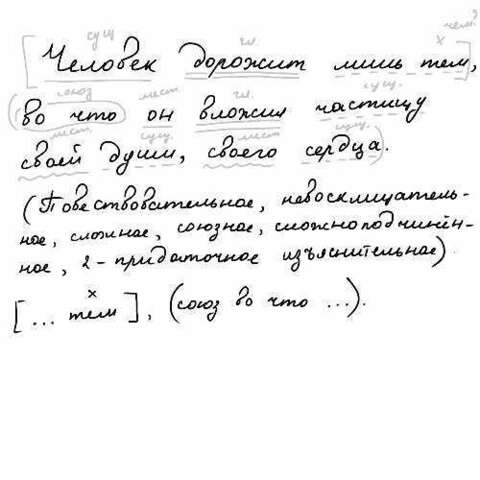 чем?
сущ гл. х
[Человек дорожит лишь тем],
союз мест. гл. сущ.
(во что он вложил частицу
мест. сущ. мест сущ.
своей души, своего сердца).
(Повествовательное, невосклицатель-
ное, сложное, союзное, сложноподчинён-
ное, 2-придаточное изъяснительное)
х
[... тем], (союз во что ...).